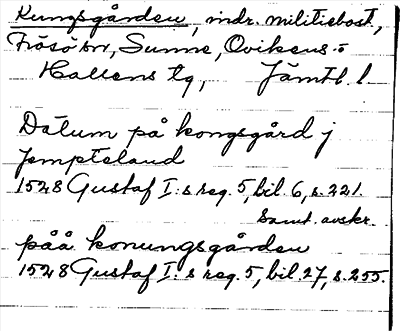 Kungsgården, indr. militiebost.,
Frösö sn, Sunne, Ovikens o
Hallens tg, Jämtl. l.
Datum på kongsgård j
Jempteland
1528 Gustaf I:s reg. 5, bil. 6, s. 221.
Samt. avskr.
påå konungsgården
1528 Gustaf I:s reg. 5, bil. 27, s. 255.